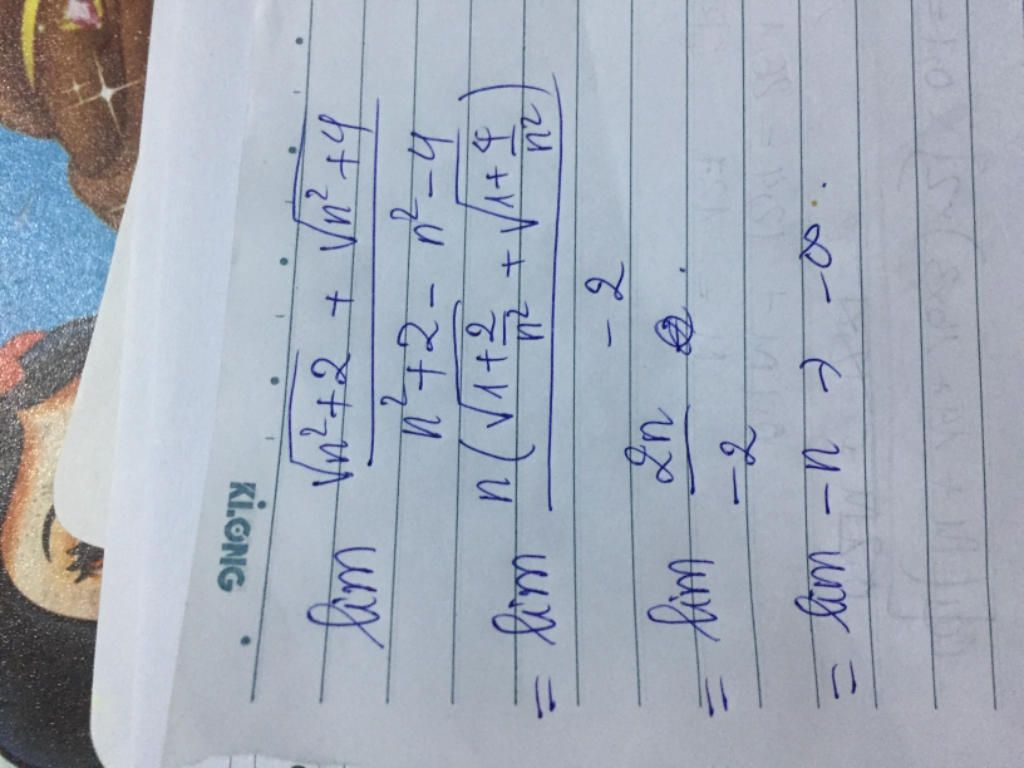 Ki.ONG
lim (√(n²+2) + √(n²+4)) / (n²+2 - n² - 4)
= lim n(√(1+2/n²) + √(1+4/n²)) / -2
= lim 2n / -2
= lim -n → -∞.